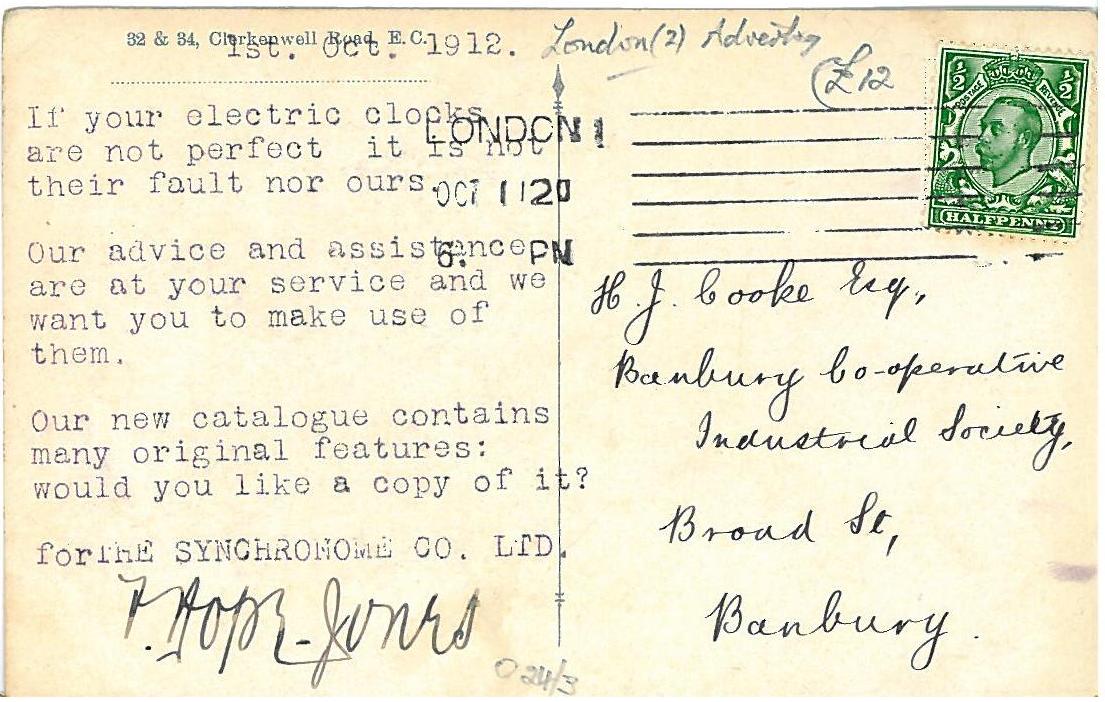 32 & 34, Clerkenwell Road, E.C.
1st. Oct. 1912.
London (2) Advertng
£12
If your electric clocks
are not perfect it is not
their fault nor ours.
Our advice and assistance
are at your service and we
want you to make use of
them.
Our new catalogue contains
many original features:
would you like a copy of it?
for THE SYNCHRONOME CO. LTD.
F. Hope-Jones
O 24/3
LONDON
OCT 1 12
6. PM
½ ½
POSTAGE REVENUE
HALFPENNY
H. J. Cooke Esq,
Banbury Co-operative
Industrial Society,
Broad St,
Banbury.